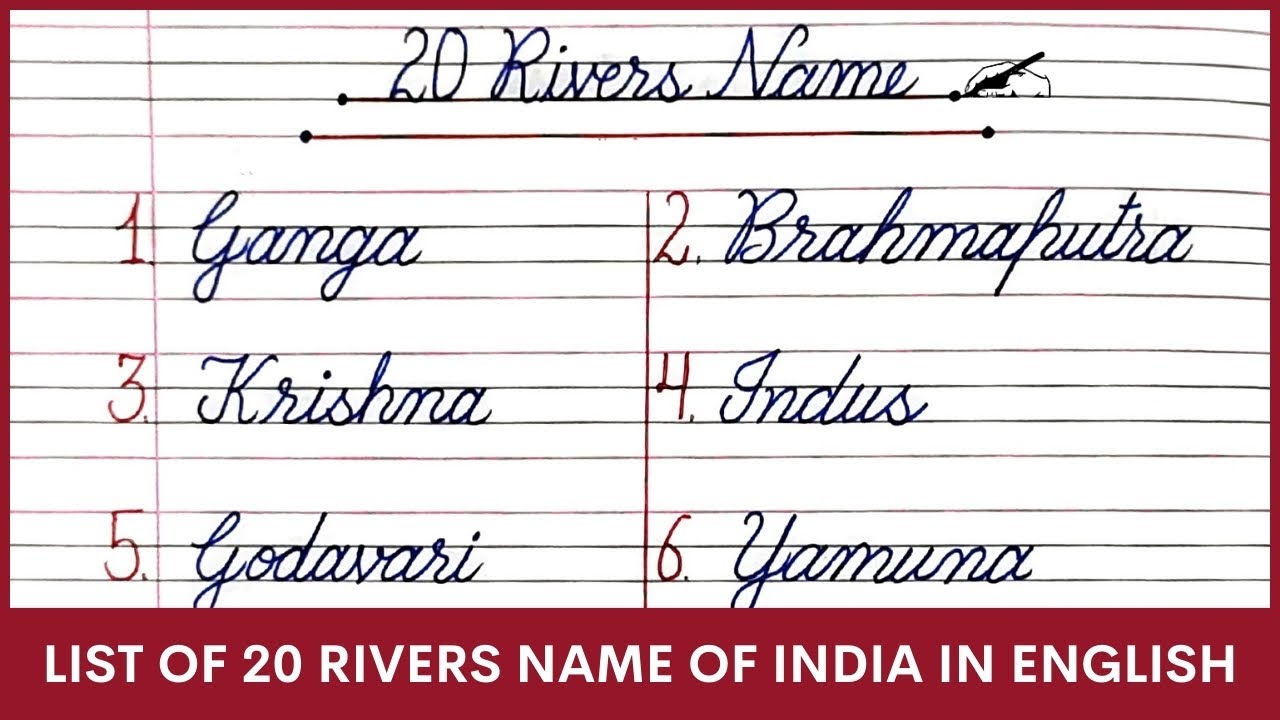 20 Rivers Name
1. Ganga 2. Brahmaputra
3. Krishna 4. Indus
5. Godavari 6. Yamuna
LIST OF 20 RIVERS NAME OF INDIA IN ENGLISH